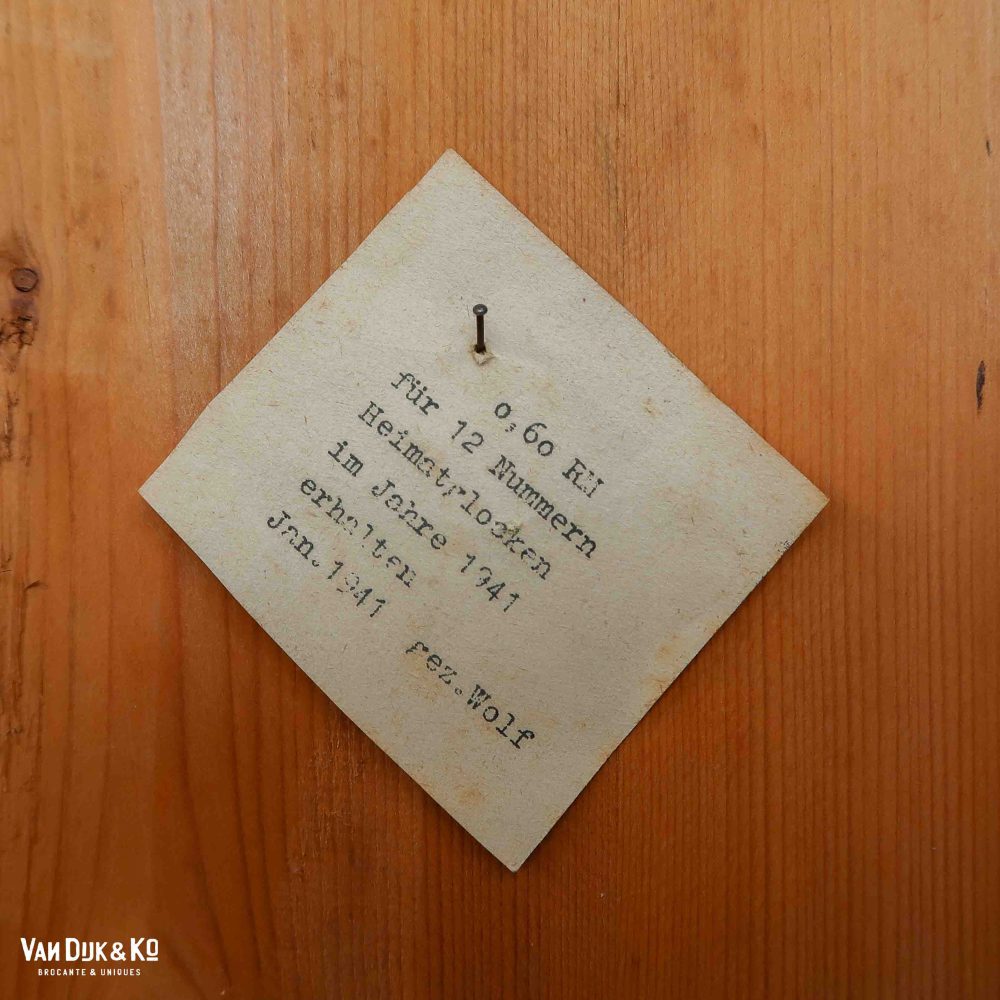 0,60 RM
für 12 Nummern
Heimatglocken
im Jahre 1941
erhalten
Jan.1941
gez.Wolf
VAN DIJK & KO
BROCANTE & UNIQUES